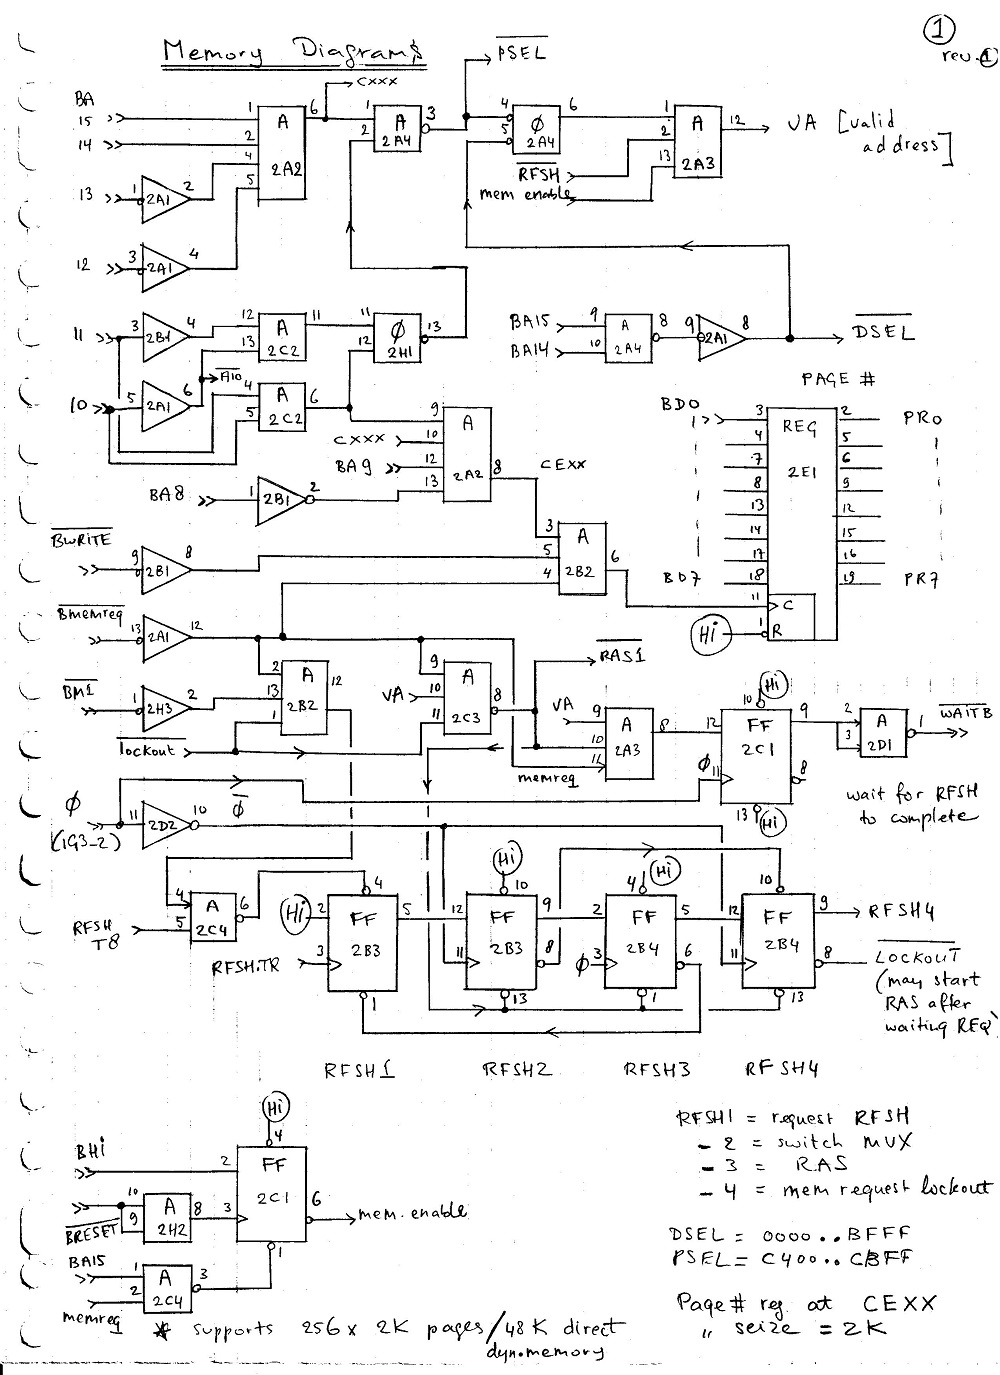 1
rev. 1
Memory Diagrams
PSEL
CXXX
BA
15
1
6
A
2A2
14
2
4
5
1
A
2A4
3
2
4
5
φ
2A4
6
1
2
13
A
2A3
12
VA [valid
address]
RFSH
mem enable
13
1
2A1
2
12
3
2A1
4
11
3
2B1
4
12
13
A
2C2
11
11
12
φ
2H1
13
BA15
BA14
9
10
A
2A4
8
9
2A1
8
DSEL
A10
10
5
2A1
6
4
5
A
2C2
6
PAGE #
CXXX
BA9
9
10
12
13
A
2A2
8
CEXX
BA8
1
2B1
2
BD0
BD7
3
4
7
8
13
14
17
18
REG
2E1
2
5
6
9
12
15
16
19
PR0
PR7
11
C
1
R
Hi
BWRITE
9
2B1
8
3
5
4
A
2B2
6
Bmemreq
13
2A1
12
BM1
1
2H3
2
2
13
1
A
2B2
12
lockout
VA
9
10
11
A
2C3
8
RAS1
VA
9
10
11
A
2A3
8
memreq
Hi
10
12
φ
11
FF
2C1
9
8
13
Hi
2
3
A
2D1
1
WAITB
wait for RFSH
to complete
φ
(1G3-2)
11
2D2
10
φ
4
5
A
2C4
6
RFSH
T8
Hi
2
3
4
FF
2B3
5
1
RFSH.TR
Hi
10
12
11
FF
2B3
9
8
13
Hi
4
2
φ
3
FF
2B4
5
6
1
10
12
11
FF
2B4
9
8
13
RFSH4
LOCKOUT
(may start
RAS after
waiting REQ)
RFSH1
RFSH2
RFSH3
RFSH4
BHi
Hi
4
2
3
FF
2C1
6
1
mem.enable
10
9
BRESET
A
2H2
8
BA15
memreq
1
2
A
2C4
3
RFSH1 = request RFSH
- 2 = switch MUX
- 3 = RAS
- 4 = mem request lockout
DSEL = 0000..BFFF
PSEL = C400..CBFF
Page# reg at CEXX
" seize = 2K
* supports 256 x 2K pages/48K direct
dyn.memory